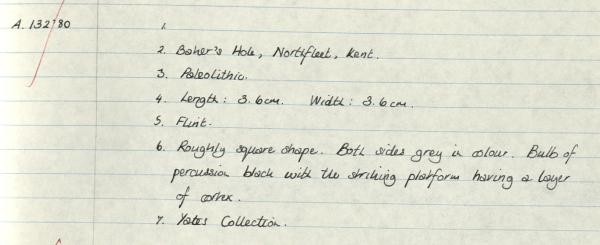 A.132'80
1.
2. Baker's Hole, Northfleet, Kent.
3. Paleolithic.
4. Length: 3.6cm. Width: 3.6cm.
5. Flint.
6. Roughly square shape. Both sides grey in colour. Bulb of
percussion black with the striking platform having a layer
of cortex.
7. Yates Collection.